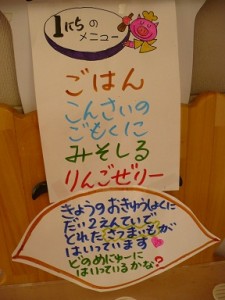 1にちの
メニュー
ごはん
こんさいの
ごもくに
みそしる
りんごゼリー
きょうのおきゅうしょくに
だい2えんていで
とれたさつまいもが
はいっています
どのめにゅーに
はいっているかな?